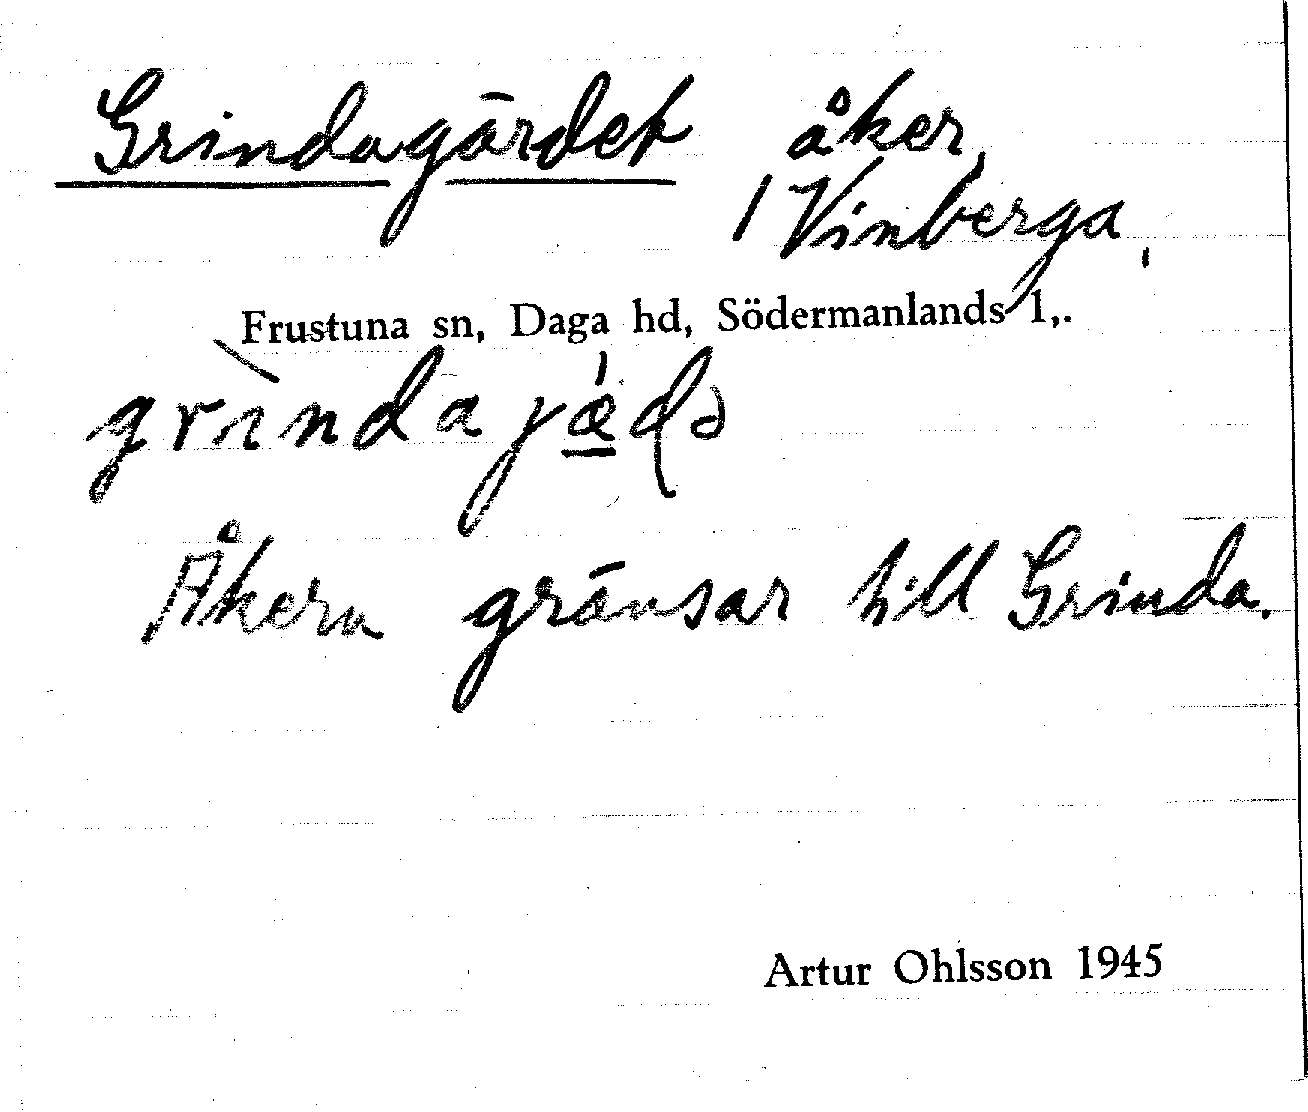 Grindagärdet åker,
1 Vinberga,
Frustuna sn, Daga hd, Södermanlands l,.
grìndajǽ̲ɖə
Åkern gränsar till Grinda.
Artur Ohlsson 1945